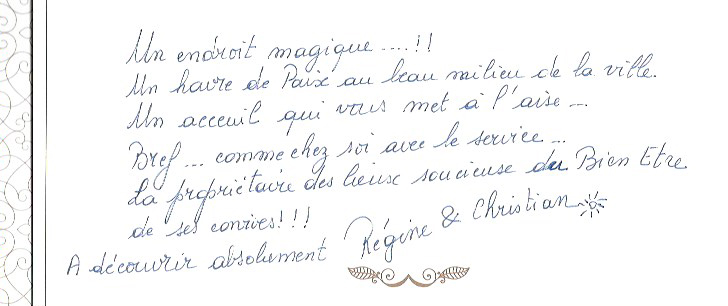 Un endroit magique....!!
Un havre de Paix au beau milieu de la ville.
Un acceuil qui vous met à l'aise...
Bref... comme chez soi avec le service...
La propriétaire des lieux soucieuse du Bien Etre
de ses convives!!!
A découvrir absolument Régine & Christian